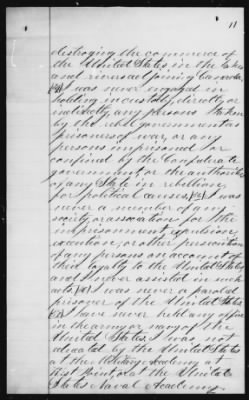 11
destroying the commerce of
the United States in the Lakes
and rivers adjoining Canada.
I was never engaged in
holding in custody, directly or
indirectly, any persons taken
by the rebel government as
prisoners of war, or any
persons imprisoned or
confined by the Confederate
government or the authorities
of any State in rebellion
for political causes, I was
never a member of any
society or association for the
imprisonment, expulsion,
execution, or other persecution
of any persons on account of
their loyalty to the United States
and never assisted in such
acts, I was never a paroled
prisoner of the United States
I have never held any office
in the army or navy of the
United States I was not
educated by the United States
at the Military Academy at
West Point or at the United
States Naval Academy